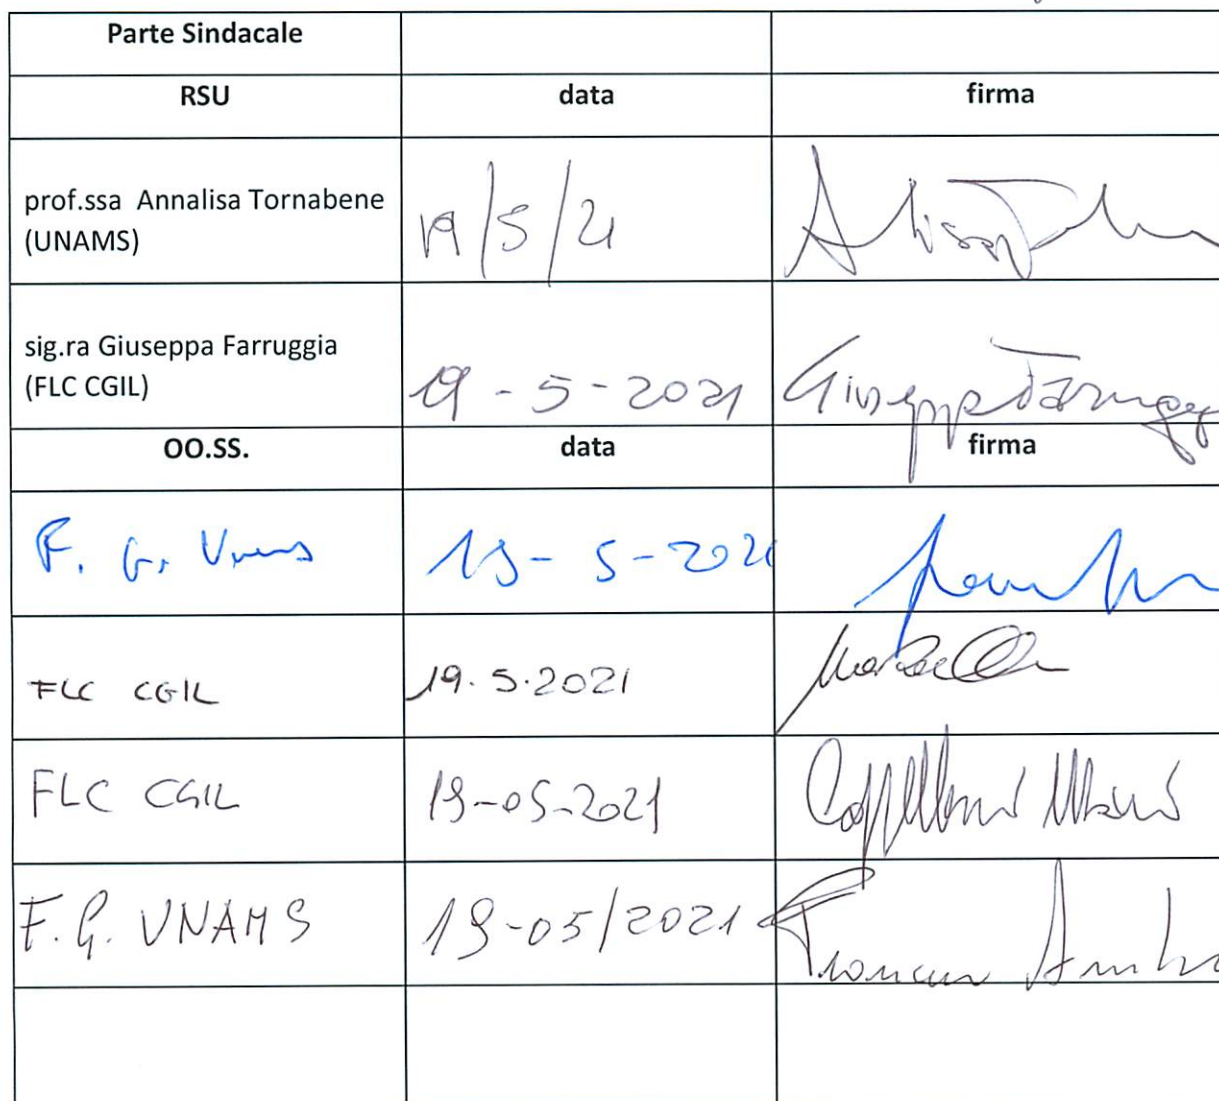 Parte Sindacale
RSU data firma
prof.ssa Annalisa Tornabene
(UNAMS)
19/5/21
sig.ra Giuseppa Farruggia
(FLC CGIL)
19-5-2021 Giuseppa Farruggia
OO.SS. data firma
F. G. Unams 19-5-2021
FLC CGIL 19.5.2021
FLC CGIL 19-05-2021
F.G. UNAMS 19-05/2021